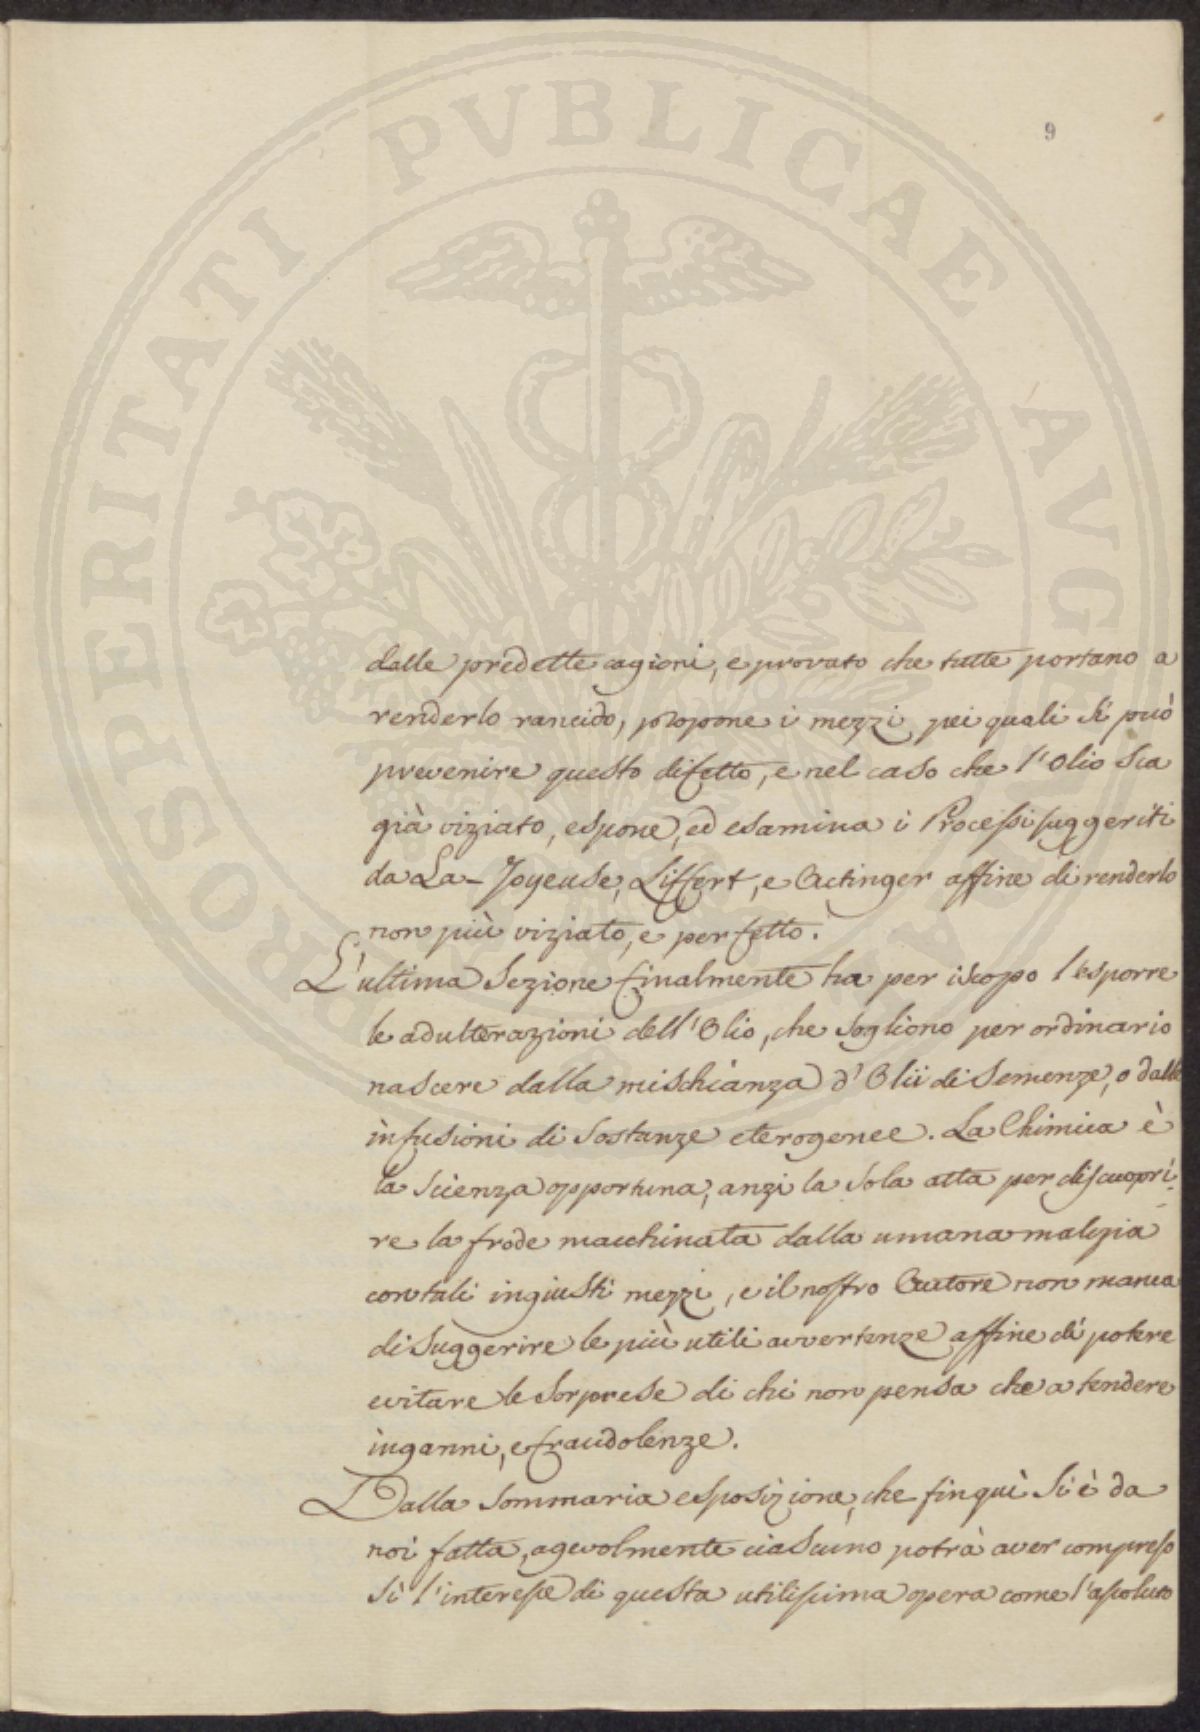 PROSPERITATI PVBLICAE AVGENDAE
9
dalle predette cagioni, e provato che tutte portano a
renderlo rancido, propone i mezzi pei quali si può
prevenire questo difetto, e nel caso che l'Olio sia
già viziato, espone, ed esamina i Processi suggeriti
da La-Joyeuse, Liffert, e Oetinger affine di renderlo
non più viziato, e perfetto.
L'ultima Sezione finalmente ha per iscopo l'esporre
le adulterazioni dell'Olio, che sogliono per ordinario
nascere dalla mischianza d'Olii di Semenze, o dalle
infusioni di Sostanze eterogenee. La Chimica è
la Scienza opportuna, anzi la sola atta per discuopri-
re la frode macchinata dalla umana malizia
con tali ingiusti mezzi, e il nostro Autore non manca
di Suggerire le più utili avvertenze affine di potere
evitare le Sorprese di chi non pensa che a tendere
inganni, e fraudolenze.
Dalla Sommaria esposizione, che finquì Si è da
noi fatta, agevolmente ciascuno potrà aver compreso
Sì l'interesse di questa utilissima opera come l'assoluto